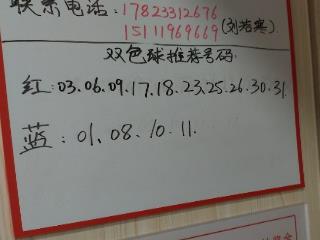 联系电话：17823312676
15111969669(刘培寒)
双色球推荐号码
红：03.06.09.17.18.23.25.26.30.31.
蓝：01.08.10.11.